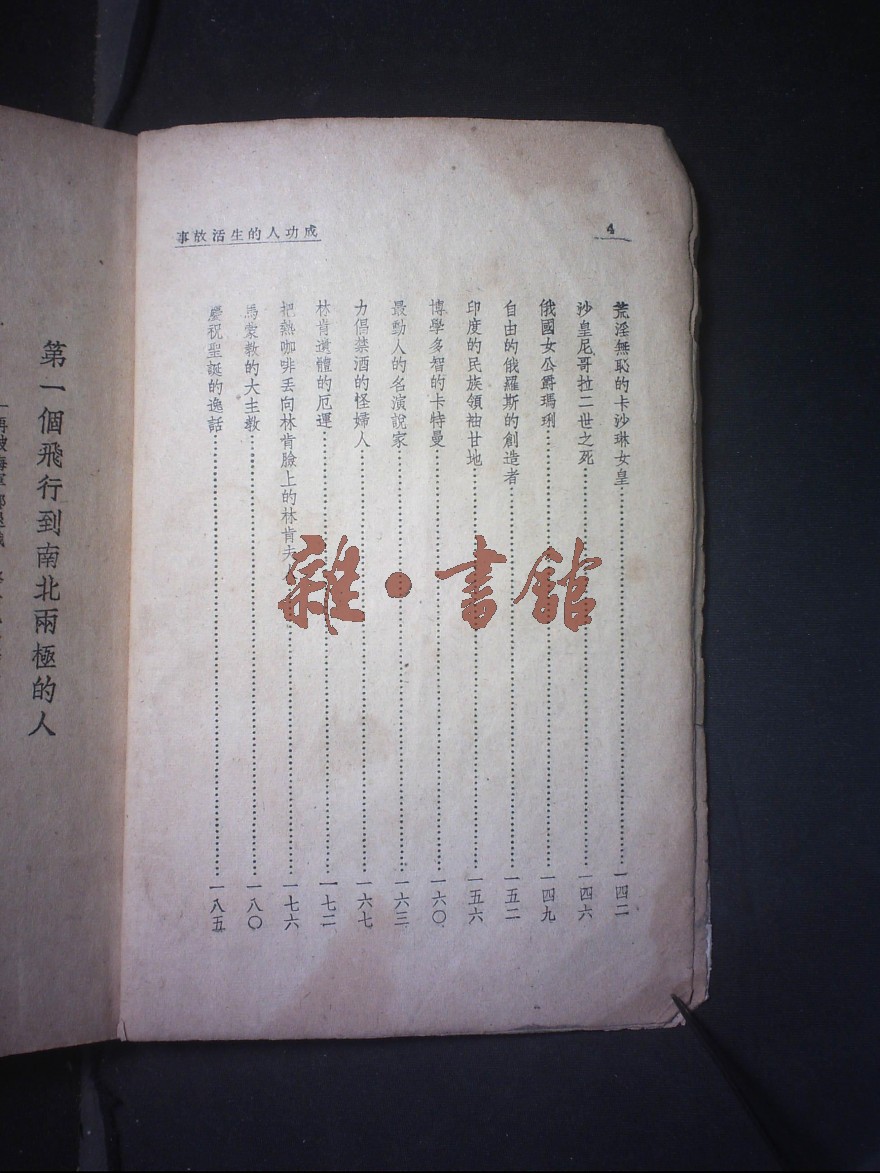 4
成功人的生活故事
荒淫無恥的卡沙琳女皇……一四二
沙皇尼哥拉二世之死……一四六
俄國女公爵瑪琍……一四九
自由的俄羅斯的創造者……一五二
印度的民族領袖甘地……一五六
博學多智的卡特曼……一六〇
最動人的名演說家……一六三
力倡禁酒的怪婦人……一六七
林肯遺體的厄運……一七二
把熱咖啡丟向林肯臉上的林肯夫人……一七六
馬蒙教的大主教……一八〇
慶祝聖誕的逸話……一八五
雜·書館
第一個飛行到南北兩極的人